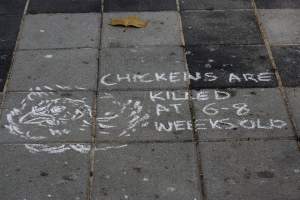 CHICKEINS ARE
KILLED
AT 6-8
WEEKS OLD